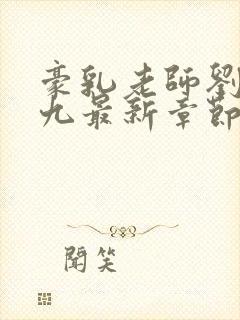 豪乳老師劉
九最新章節
聞笑